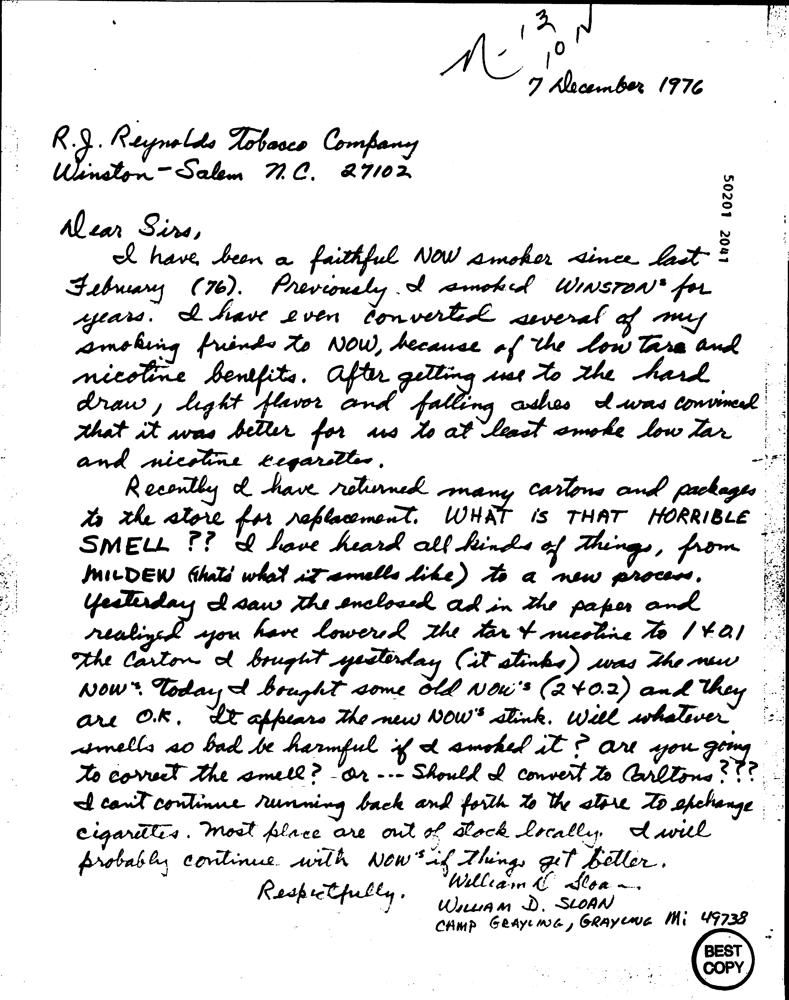 N-13
10N
7 December 1976
R.J. Reynolds Tobacco Company
Winston-Salem N.C. 27102
50201 2041
Dear Sirs,
I have been a faithful NOW smoker since last
February (76). Previously I smoked WINSTON's for
years. I have even converted several of my
smoking friends to NOW, because of the low tars and
nicotine benefits. After getting use to the hard
draw, light flavor and falling ashes I was convinced
that it was better for us to at least smoke low tar
and nicotine cegarettes.
Recently I have returned many cartons and packages
to the store for replacement. WHAT IS THAT HORRIBLE
SMELL ?? I have heard all kinds of things, from
MILDEW (thats what it smells like) to a new process.
Yesterday I saw the enclosed ad in the paper and
realized you have lowered the tar + nicotine to 1 + 0.1
The Carton I bought yesterday (it stinks) was the new
NOW's. Today I bought some old NOW's (2 + 0.2) and they
are O.K. It appears the new NOW's stink. Will whatever
smells so bad be harmful if I smoked it? Are you going
to correct the smell? Or --- Should I convert to Carltons???
I can't continue running back and forth to the store to exchange
cigarettes. Most place are out of stock locally. I will
probably continue with NOW's if things get better.
Respectfully.
William D Sloan
WILLIAM D. SLOAN
CAMP GRAYLING, GRAYLING Mi 49738
BEST
COPY